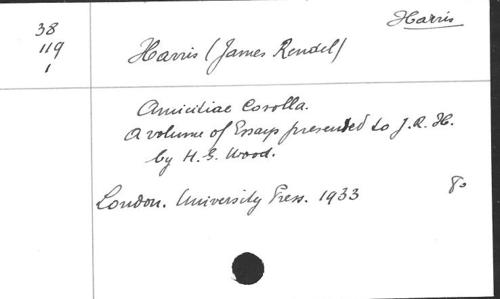 Harris
38
119
1
Harris (James Rendel)
Amicitiae Corolla.
A volume of Essays presented to J. R. H.
by H. G. Wood.
London. University Press. 1933
8o